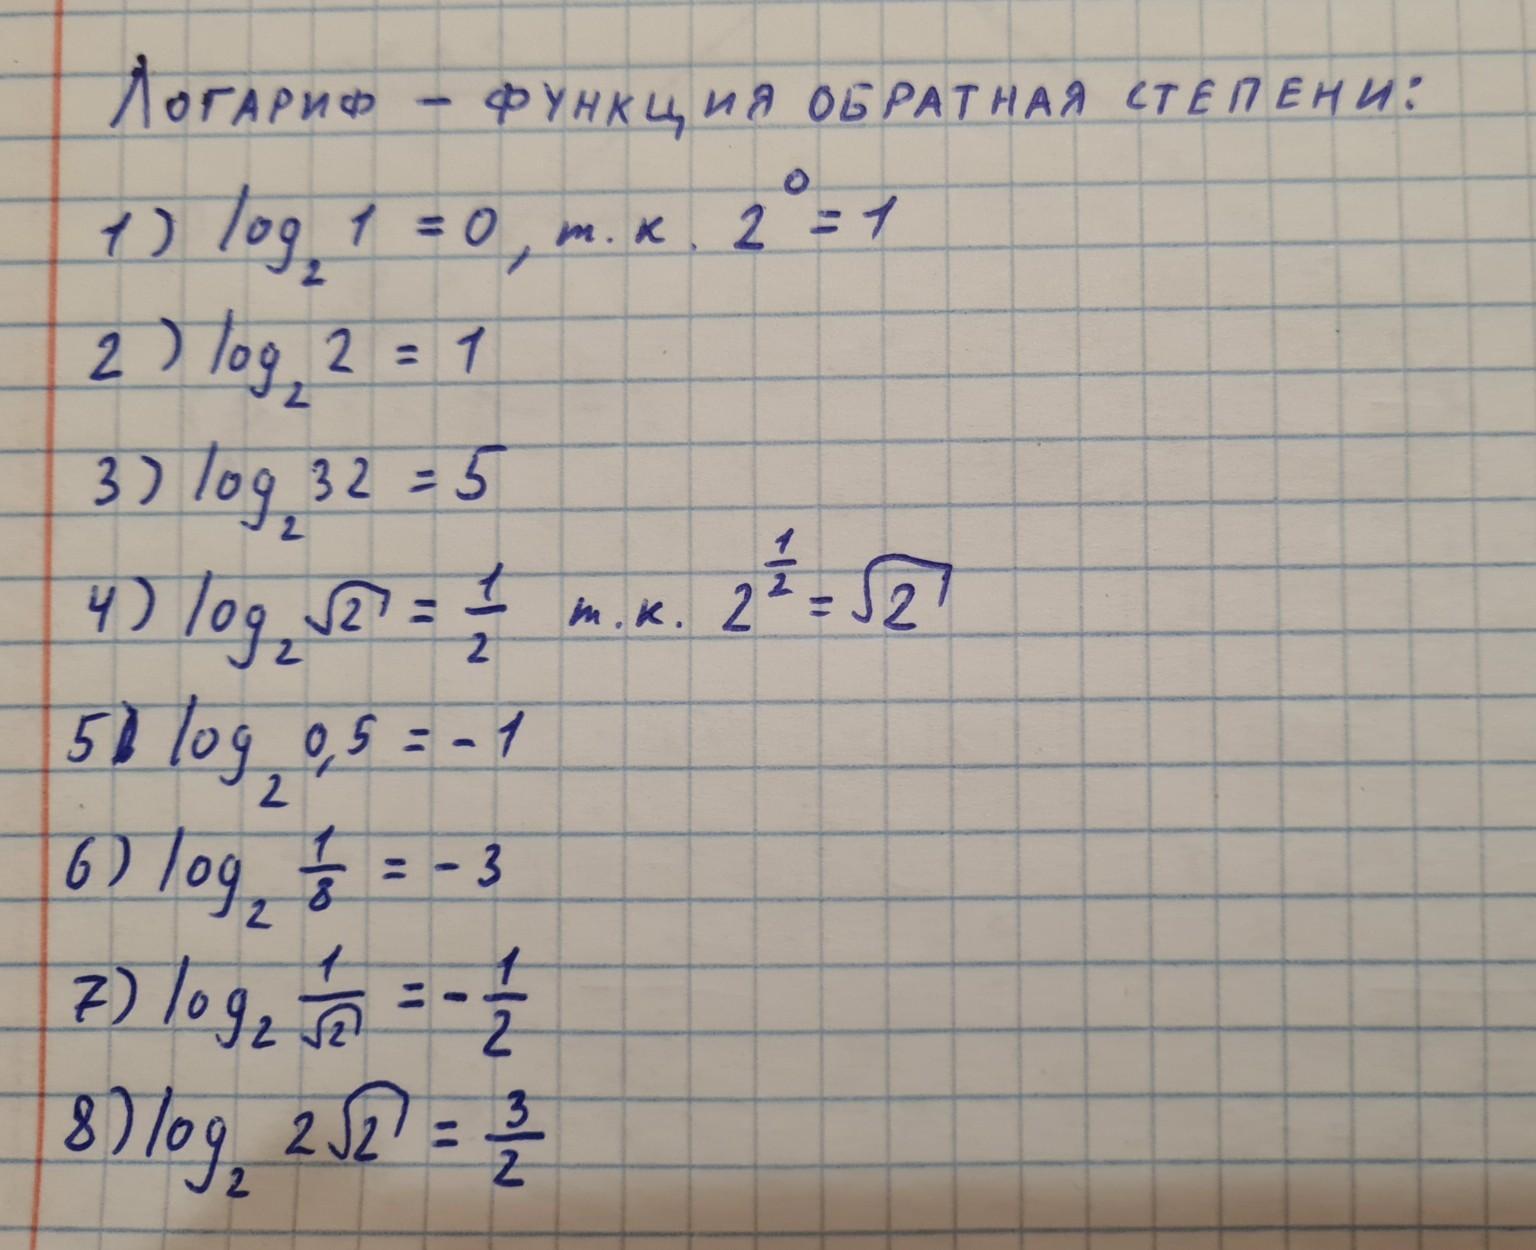 Логариф - функция обратная степени:
1) log₂ 1 = 0, т.к. 2⁰ = 1
2) log₂ 2 = 1
3) log₂ 32 = 5
4) log₂ √2 = 1/2 т.к. 2^(1/2) = √2
5) log₂ 0,5 = -1
6) log₂ 1/8 = -3
7) log₂ 1/√2 = -1/2
8) log₂ 2√2 = 3/2